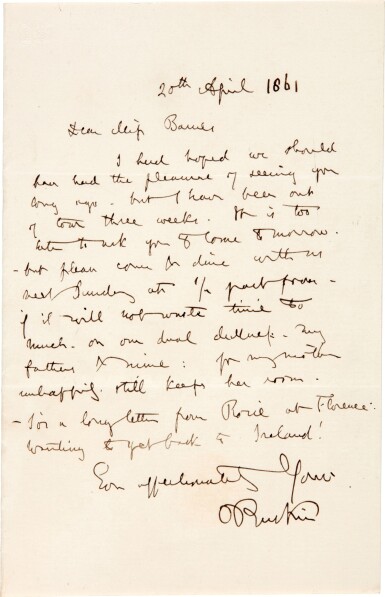 20th April 1861
Dear Miss Barnes
I had hoped we should
have had the pleasure of seeing you
long ago. but I have been out
of town three weeks. It is too
late to ask you to come tomorrow.
- but please come & dine with us
next Sunday at ½ past four -
if it will not waste time too
much. on our dual dullness. my
fathers & mine: for my mother
unhappily still keeps her room.
- I've a long letter from Rosie at Florence:
wanting to get back to Ireland!
Ever affectionately Yours
JRuskin